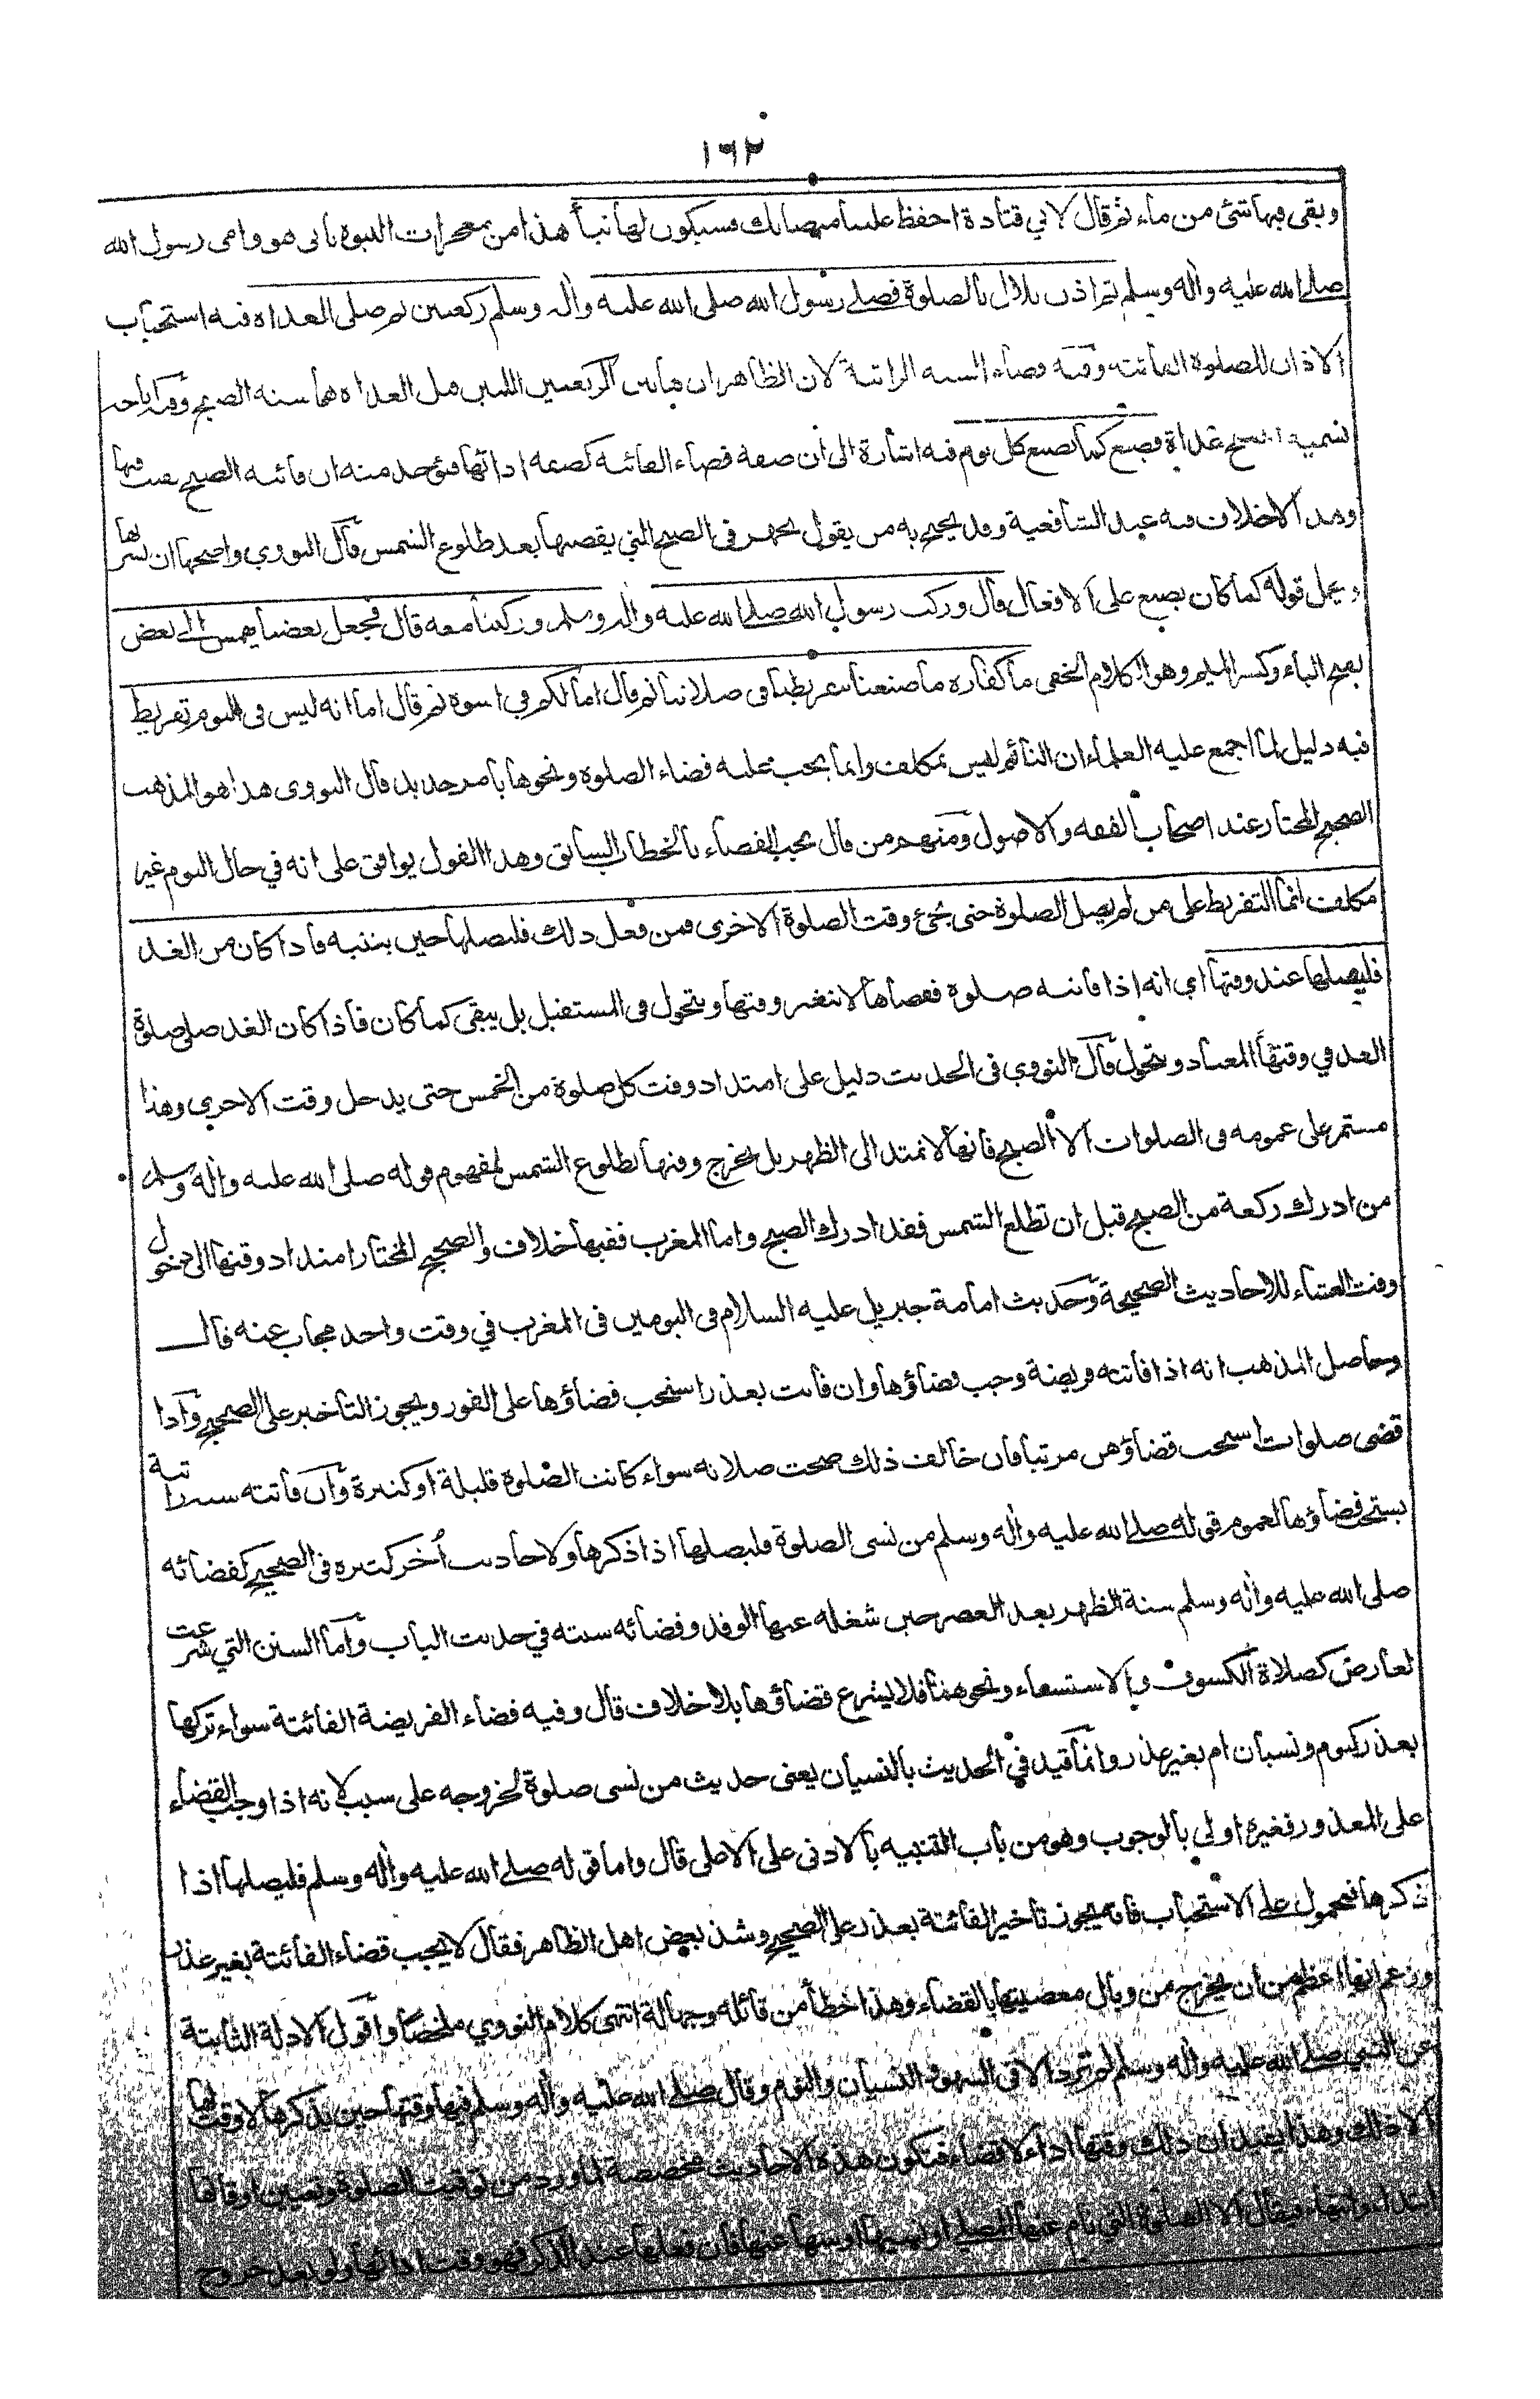 ١٦٢
وبقى فيها شئ من ماء ثم قال لابي قتادة احفظ علينا ميضاتك فسيكون لها نبأ هذا من معجزات النبوة بابى هو وامى رسول الله
صلے الله عليه واله وسلم ثم اذن بلال بالصلوة فصلے رسول الله صلى الله عليه واله وسلم ركعتين ثم صلى الغداة فيه استحباب
الاذان للصلوة الفائتة وفيه قضاء السنة الراتبة لان الظاهر ان هاتين الركعتين اللتين قبل الغداة هما سنة الصبح وفيه اباحة
تسمية الصبح غداة فصنع كما تصنع كل يوم فيه اشارة الى أن صفة قضاء الفائتة كصفة ادائها فيؤخذ منه ان فائتة الصبح يقنت فيها
وهذا لاخلاف فيه عند الشافعية وقد يحتج به من يقول يجهر فى الصبح التي يقضيها بعد طلوع الشمس قال النووي واصحها ان يسر لها
ويحمل قوله كما كان يصنع على الافعال قال وركب رسول الله صلے الله عليه واله وسلم وركبنا معه قال فجعل بعضنا يهمس الى بعض
بفتح الياء وكسر الميم وهو الكلام الخفى ما كفارة ما صنعنا بتفريطنا فى صلاتنا ثم قال اما لكم في اسوة ثم قال اما انه ليس فى النوم تفريط
فيه دليل لما اجمع عليه العلماء ان النائم ليس بمكلف وانما يجب عليه قضاء الصلوة ونحوها بامر جديد قال النووى هذا هو المذهب
الصحيح المختار عند اصحاب الفقه والاصول ومنهم من قال يجب القضاء بالخطاب السابق وهذا القول يوافق على انه في حال النوم غير
مكلف انما التفريط على من لم يصل الصلوة حتى يجئ وقت الصلوة الاخرى فمن فعل ذلك فليصلها حين ينتبه فاذا كان من الغد
فليصلها عند وقتها اي انه اذا فاتته صلوة فقضاها لا يتغير وقتها ويتحول فى المستقبل بل يبقى كما كان فاذا كان الغد صلى صلوة
الغد في وقتها المعتاد ويتحول قال النووي فى الحديث دليل على امتداد وقت كل صلوة من الخمس حتى يدخل وقت الاخرى وهذا
مستمر على عمومه فى الصلوات الا الصبح فانها لا تمتد الى الظهر بل يخرج وقتها بطلوع الشمس لمفهوم قوله صلى الله عليه واله وسلم
من ادرك ركعة من الصبح قبل ان تطلع الشمس فقد ادرك الصبح واما المغرب ففيها خلاف والصحيح المختار امتداد وقتها الى دخول
وقت العشاء للاحاديث الصحيحة وحديث امامة جبريل عليه السلام فى اليومين فى المغرب في وقت واحد مجاب عنه قال
وحاصل المذهب انه اذا فاتته فريضة وجب قضاؤها وان فاتت بعذر استحب قضاؤها على الفور ويجوز التأخير على الصحيح واذا
قضى صلوات استحب قضاؤهن مرتبا فان خالف ذلك صحت صلاته سواء كانت الصلوة قليلة او كثيرة وان فاتته سنة راتبة
يستحب قضاؤها لعموم قوله صلے الله عليه واله وسلم من نسى الصلوة فليصلها اذا ذكرها ولاحاديث أخر كثيرة فى الصحيح كقضائه
صلى الله عليه واله وسلم سنة الظهر بعد العصر حين شغله عنها الوفد وقضائه سنته في حديث الباب واما السنن التي شرعت
لعارض كصلاة الكسوف والاستسقاء ونحوهما فلا يشرع قضاؤها بلا خلاف قال وفيه قضاء الفريضة الفائتة سواء تركها
بعذر كنوم ونسيان ام بغير عذر وانما قيد في الحديث بالنسيان يعنى حديث من نسى صلوة لخروجه على سبب لانه اذا وجب القضاء
على المعذور فغيره اولى بالوجوب وهو من باب التنبيه بالادنى على الاعلى قال واما قوله صلے الله عليه واله وسلم فليصلها اذا
ذكرها فمحمول على الاستحباب فانه يجوز تاخير الفائتة بعذر على الصحيح وشذ بعض اهل الظاهر فقال لا يجب قضاء الفائتة بغير عذر
وزعم انها اعظم من ان يخرج من وبال معصيتها بالقضاء وهذا خطأ من قائله وجهالة انتهى كلام النووي ملخصا واقول الادلة الثابتة
عن النبي صلے الله عليه واله وسلم لم ترد الا فى السهو والنسيان والنوم وقال صلے الله عليه واله وسلم فيها وقتها حين يذكرها لا وقت لها
الا ذلك وهذا يفيد ان ذلك وقتها اداء لا قضاء فتكون هذه الاحاديث مخصصة لما ورد من توقيت الصلوة وتعيين اوقاتها
ابتداء وانتهاء فيقال الا الصلوة التي نام عنها المصلے او نسيها او سها عنها فان فعلها عند الذكر فهو وقت ادائها ولو بعد خروج